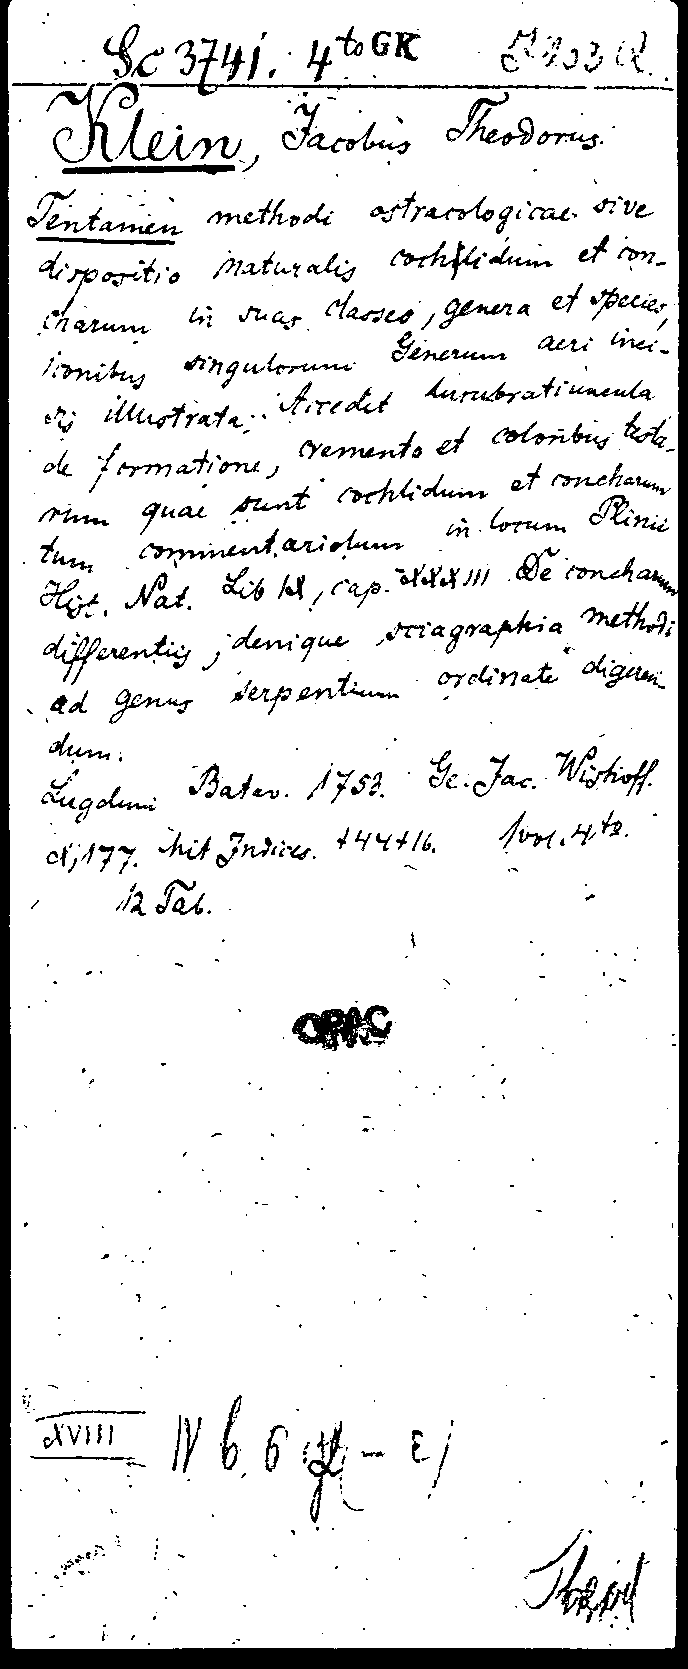 Sc 3741. 4to GK
Klein, Jacobus Theodorus.
Tentamen methodi ostracologicae sive
dispositio naturalis cochlidum et con-
charum in suas classes, genera et species,
iconibus singulorum Generum aeri inci-
sis illustrata; Accedit lucubratiuncula
de formatione, cremento et coloribus testa-
rum quae sunt cochlidum et concharum
tum commentariolum in locum Plinii
Hist. Nat. Lib IX, cap. XXXIII De concharum
differentiis; denique sciagraphia methodi
ad genus serpentium ordinate digeren-
dum.
Lugduni Batav. 1753. Ge. Jac. Wishoff.
X, 177. Mit Indices. +44+16. 1 vol. 4to.
12 Tab.
OPAC
XVIII IV b. 6